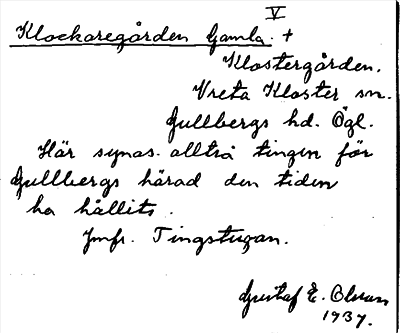 V
Klockaregården Gamla. +
Klostergården.
Vreta Kloster sn.
Gullbergs hd. Ögl.
Här synas alltså tingen för
Gullbergs härad den tiden
ha hållits.
Jmfr. Tingstugan.
Gustaf E. Olsson
1937.